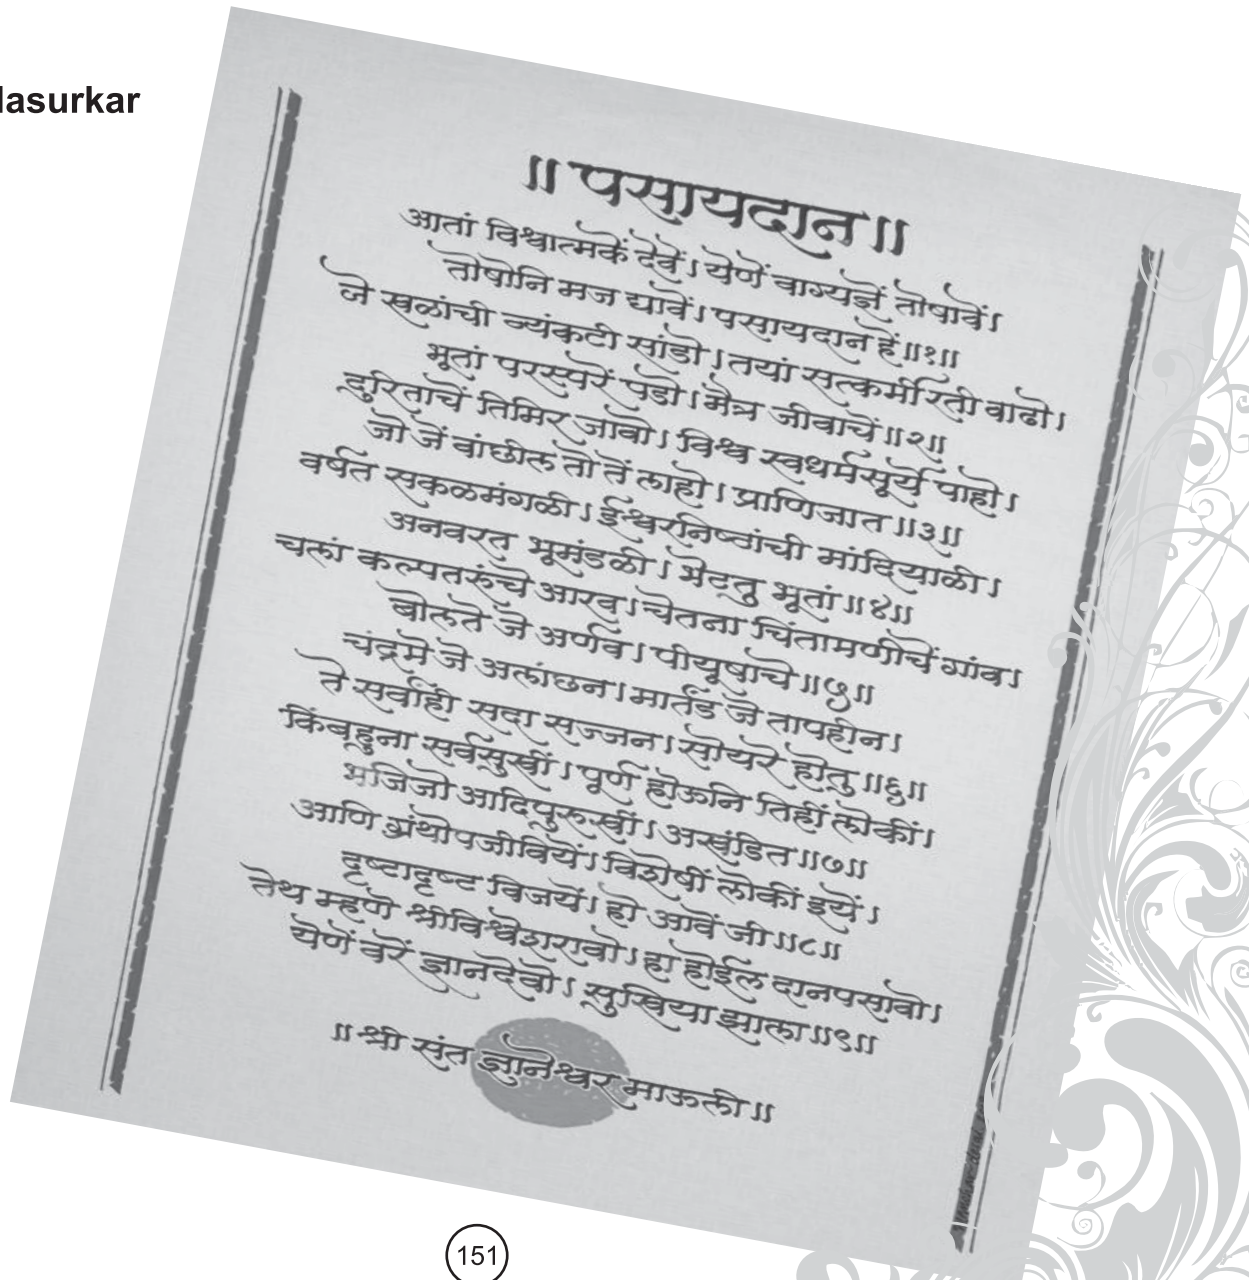 lasurkar
॥ पसायदान ॥
आतां विश्वात्मकें देवें। येणें वाग्यज्ञें तोषावें।
तोषोनि मज द्यावें। पसायदान हें॥१॥
जे खळांची व्यंकटी सांडो। तयां सत्कर्मी रती वाढो।
भूतां परस्परें पडो। मैत्र जीवाचें॥२॥
दुरिताचें तिमिर जावो। विश्व स्वधर्मसूर्यें पाहो।
जो जें वांछील तो तें लाहो। प्राणिजात॥३॥
वर्षत सकळमंगळी। ईश्वरनिष्ठांची मांदियाळी।
अनवरत भूमंडळी। भेटतु भूतां॥४॥
चलां कल्पतरुंचे आरव। चेतना चिंतामणीचें गांव।
बोलते जे अर्णव। पीयूषाचे॥५॥
चंद्रमे जे अलांछन। मार्तंड जे तापहीन।
ते सर्वांही सदा सज्जन। सोयरे होतु॥६॥
किंबहुना सर्वसुखीं। पूर्ण होऊनि तिहीं लोकीं।
भजिजो आदिपुरुखीं। अखंडित॥७॥
आणि ग्रंथोपजीवियें। विशेषीं लोकीं इयें।
दृष्टादृष्ट विजयें। हो आवें जी॥८॥
तेथ म्हणे श्रीविश्वेशरावो। हा होईल दानपसावो।
येणें वरें ज्ञानदेवो। सुखिया झाला॥९॥
॥ श्री संत ज्ञानेश्वर माऊली॥
151